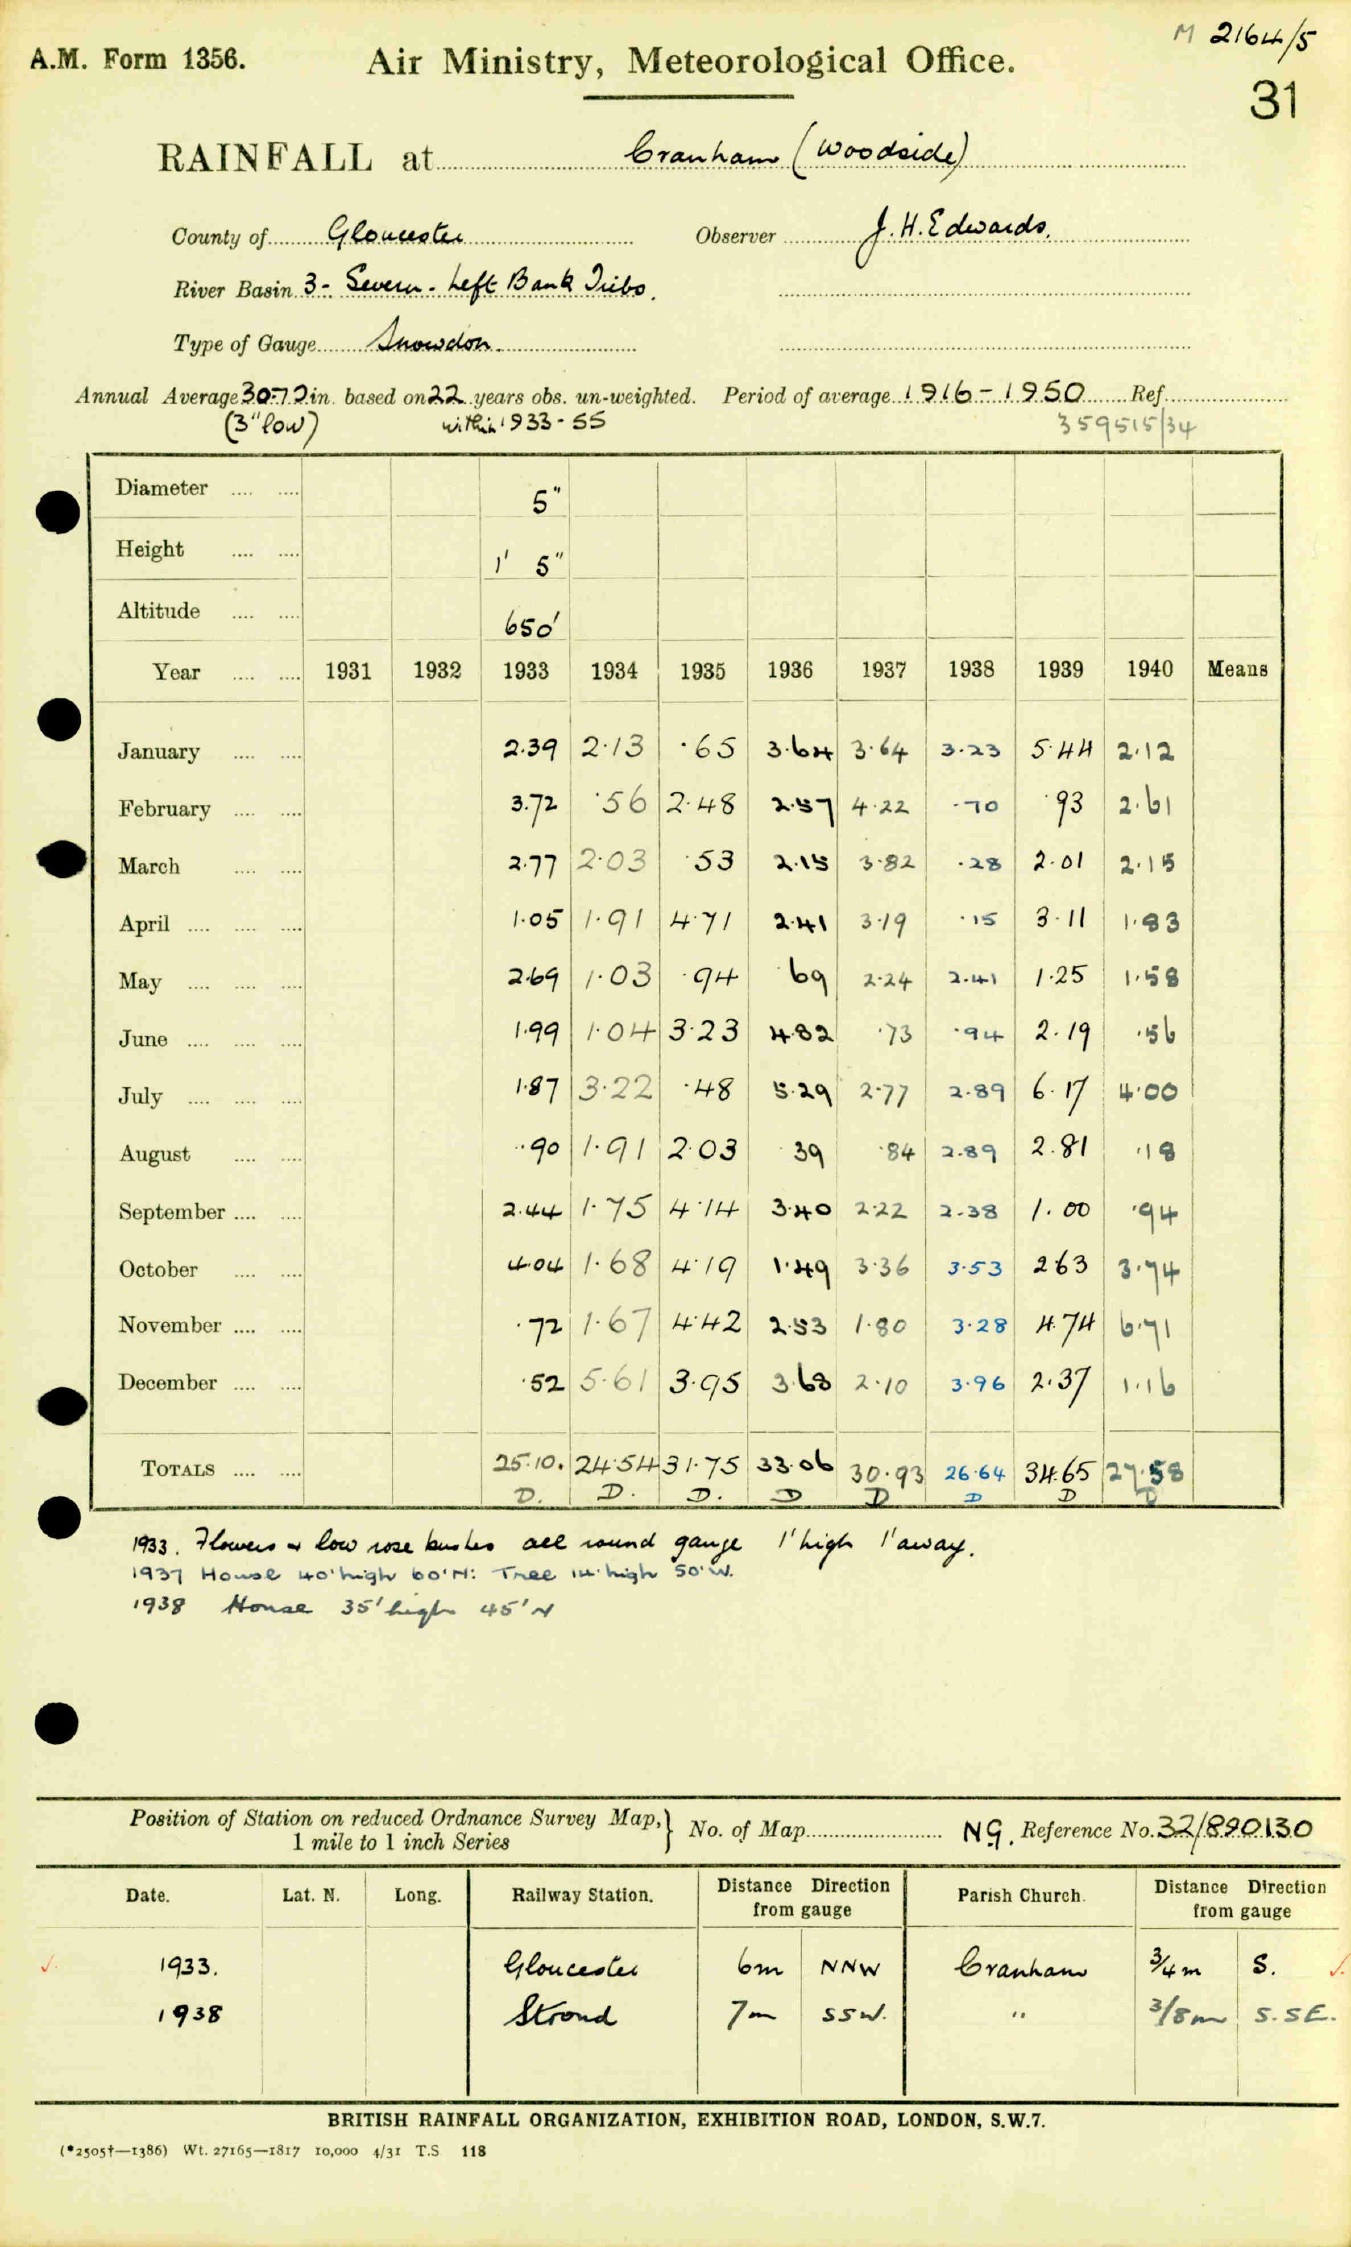 M 2164/5
A.M. Form 1356. Air Ministry, Meteorological Office.
31
RAINFALL at Cranham (Woodside)
County of Gloucester Observer J. H. Edwards.
River Basin 3 - Severn - Left Bank Tribs.
Type of Gauge Snowdon.
Annual Average 30.72 in. based on 22 years obs. un-weighted. Period of average 1916 - 1950 Ref.
(3" low) within 1933 - 55 359515/34
Diameter .... .... 5"
Height .... .... 1' 5"
Altitude .... .... 650'
Year .... .... 1931 1932 1933 1934 1935 1936 1937 1938 1939 1940 Means
January .... .... 2.39 2.13 .65 3.64 3.64 3.23 5.44 2.12
February .... .... 3.72 .56 2.48 2.57 4.22 .70 .93 2.61
March .... .... 2.77 2.03 .53 2.15 3.82 .28 2.01 2.15
April .... .... .... 1.05 1.91 4.71 2.41 3.19 .15 3.11 1.83
May .... .... .... 2.69 1.03 .94 69 2.24 2.41 1.25 1.58
June .... .... .... 1.99 1.04 3.23 4.82 .73 .94 2.19 .56
July .... .... .... 1.87 3.22 .48 5.29 2.77 2.89 6.17 4.00
August .... .... .90 1.91 2.03 .39 .84 2.89 2.81 .18
September .... .... 2.44 1.75 4.14 3.40 2.22 2.38 1.00 .94
October .... .... 4.04 1.68 4.19 1.49 3.36 3.53 2 63 3.74
November .... .... .72 1.67 4.42 2.53 1.80 3.28 4.74 6.71
December .... .... .52 5.61 3.95 3.68 2.10 3.96 2.37 1.16
TOTALS .... .... 25.10. 24.54 31.75 33.06 30.93 26.64 34.65 27.58
D. D. D. D D D D D
1933. Flowers & low rose bushes all round gauge 1' high 1' away.
1937 House 40' high 60' N: Tree 14' high 50' W.
1938 House 35' high 45' N
Position of Station on reduced Ordnance Survey Map,} No. of Map NG. Reference No. 32/890130
1 mile to 1 inch Series
Date. Lat. N. Long. Railway Station. Distance Direction from gauge Parish Church. Distance Direction from gauge
1933. Gloucester 6m NNW Cranham 3/4 m S.
1938 Stroud 7m SSW. " 3/8 m S.SE.
BRITISH RAINFALL ORGANIZATION, EXHIBITION ROAD, LONDON, S.W.7.
(*2505†—1386) Wt. 27165—1817 10,000 4/31 T.S 118